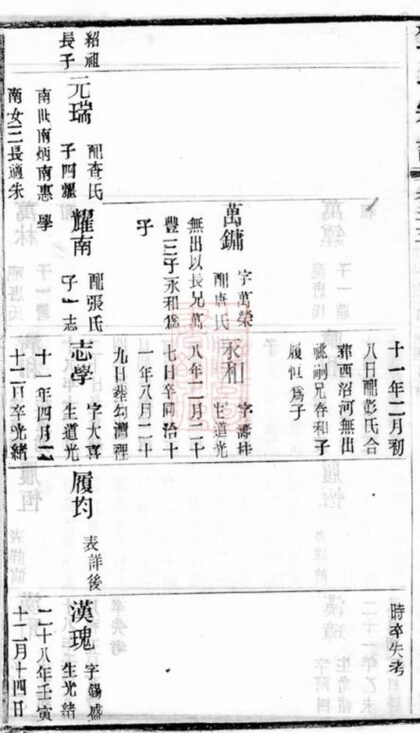 紹祖
長子
元瑞
配查氏
子四耀
南世南炳南惠
南女三長適朱
萬鏞
字萬榮
配唐氏
無出以長兄萬
豐三子永和爲
子
耀南
配張氏
子一志
學
十一年二月初
八日配彭氏合
葬西沼河無出
祧嗣兄春和子
履 爲子
永和
字壽坤
生道光
八年二月二十
七日卒同治十
一年八月二十
九日葬勾灣裡
志學
字大喜
生道光
十一年四月二
十二日卒光緒
履均
表詳後
時卒失考
漢瑰
字錫盛
生光緒
二十八年壬寅
十二月十四日